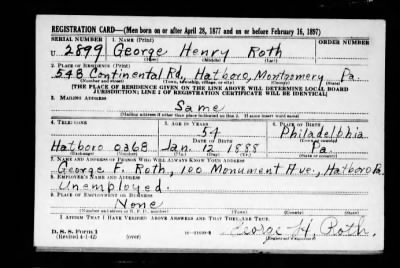 REGISTRATION CARD—(Men born on or after April 28, 1877 and on or before February 16, 1897)
SERIAL NUMBER 1. NAME (Print)
U 2899 George Henry Roth
(First) (Middle) (Last)
2. PLACE OF RESIDENCE (Print)
548 Continental Rd., Hatboro, Montgomery Pa.
(Number and street) (Town, township, village, or city) (County) (State)
[THE PLACE OF RESIDENCE GIVEN ON THE LINE ABOVE WILL DETERMINE LOCAL BOARD
JURISDICTION; LINE 2 OF REGISTRATION CERTIFICATE WILL BE IDENTICAL]
3. MAILING ADDRESS
Same
[Mailing address if other than place indicated on line 2. If same insert word same]
4. TELEPHONE 5. AGE IN YEARS 6. PLACE OF BIRTH
54 Philadelphia
DATE OF BIRTH (Town or county)
Hatboro 0368 Jan. 12 1888 Pa.
(Exchange) (Number) (Mo.) (Day) (Yr.) (State or country)
7. NAME AND ADDRESS OF PERSON WHO WILL ALWAYS KNOW YOUR ADDRESS
George F. Roth, 100 Monument Ave., Hatboro Pa.
8. EMPLOYER'S NAME AND ADDRESS
Unemployed.
9. PLACE OF EMPLOYMENT OR BUSINESS
None
(Number and street or R. F. D. number) (Town) (County) (State)
I AFFIRM THAT I HAVE VERIFIED ABOVE ANSWERS AND THAT THEY ARE TRUE.
D. S. S. Form 1
(Revised 4-1-42) (over) George H. Roth
(Registrant's signature)